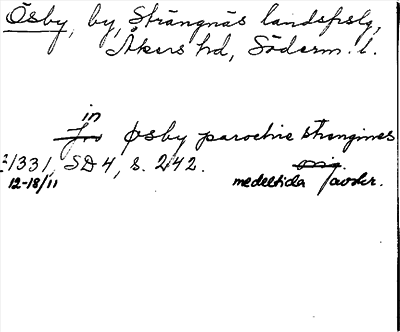 Ösby, by, Strängnäs landsfslg,
Åkers hd, Söderm. l.
in
Øsby parochie strengines
1331, SD 4, s. 242.
12-18/11 medeltida avskr.